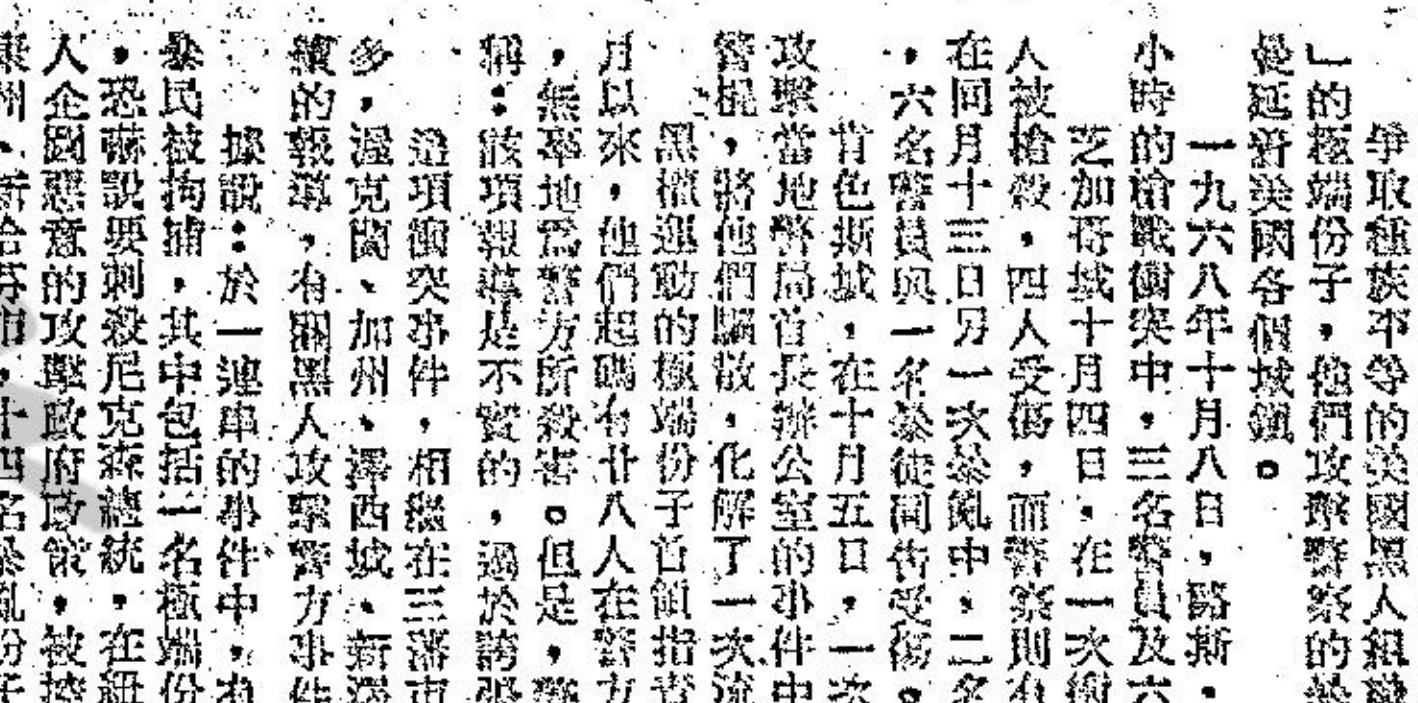 爭取種族平等的美國黑人組織
」的極端份子，他們攻擊警察的
蔓延著美國各個城鎮。
一九六八年十月八日，路斯．
小時的槍戰衝突中，三名警員及六
芝加哥城十月四日，在一次衝
人被槍殺，四人受傷，而警察則有
在同月十三日另一次暴亂中，二名
，六名警員與一名暴徒同告受傷。
肯色斯城，在十月五日，一次
攻擊當地警局首長辦公室的事件中
警棍，將他們驅散，化解了一次流
黑權運動的極端份子首領指責
月以來，他們起碼有廿八人在警方
，無辜地為警方所殺害。但是，警
稱：該項報導是不實的，過於誇張
這項衝突事件，相繼在三藩市
多，渥克蘭、加州、澤西城、新澤
續的報導，有關黑人攻擊警方事件
據說：於一連串的事件中，有
暴民被拘捕，其中包括一名極端份
，恐嚇說要刺殺尼克森總統，在紐
人企圖惡意的攻擊政府政策，被控
康州、新哈芬市，十四名暴亂份子